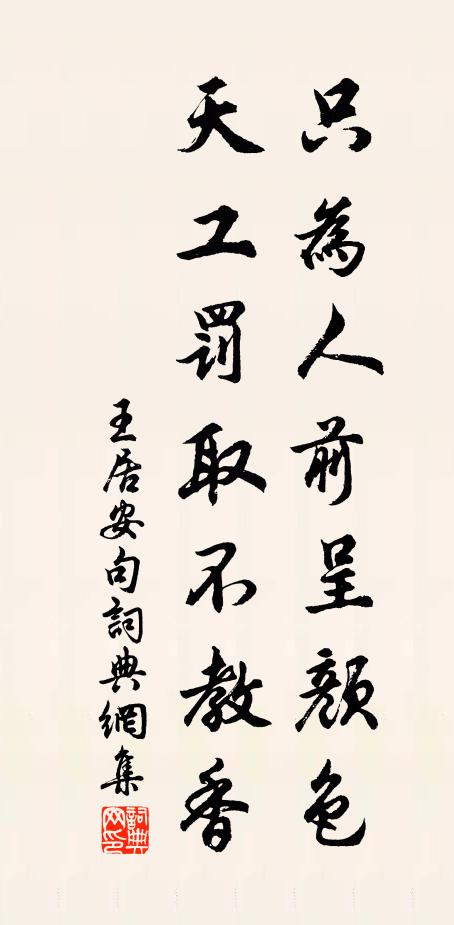 只為人前呈顏色
天工罰取不教香
王居安句詞典網集
詞典網印